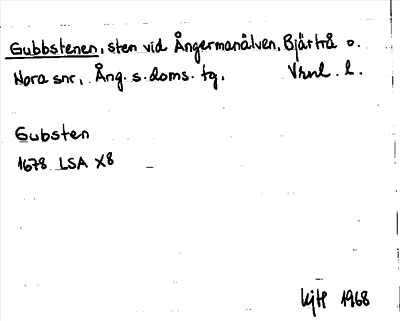 Gubbstenen, sten vid Ångermanälven, Bjärtrå o.
Nora snr, Ång. s. doms. tg. Vrml. l.
Gubsten
1678 LSA X8
1968